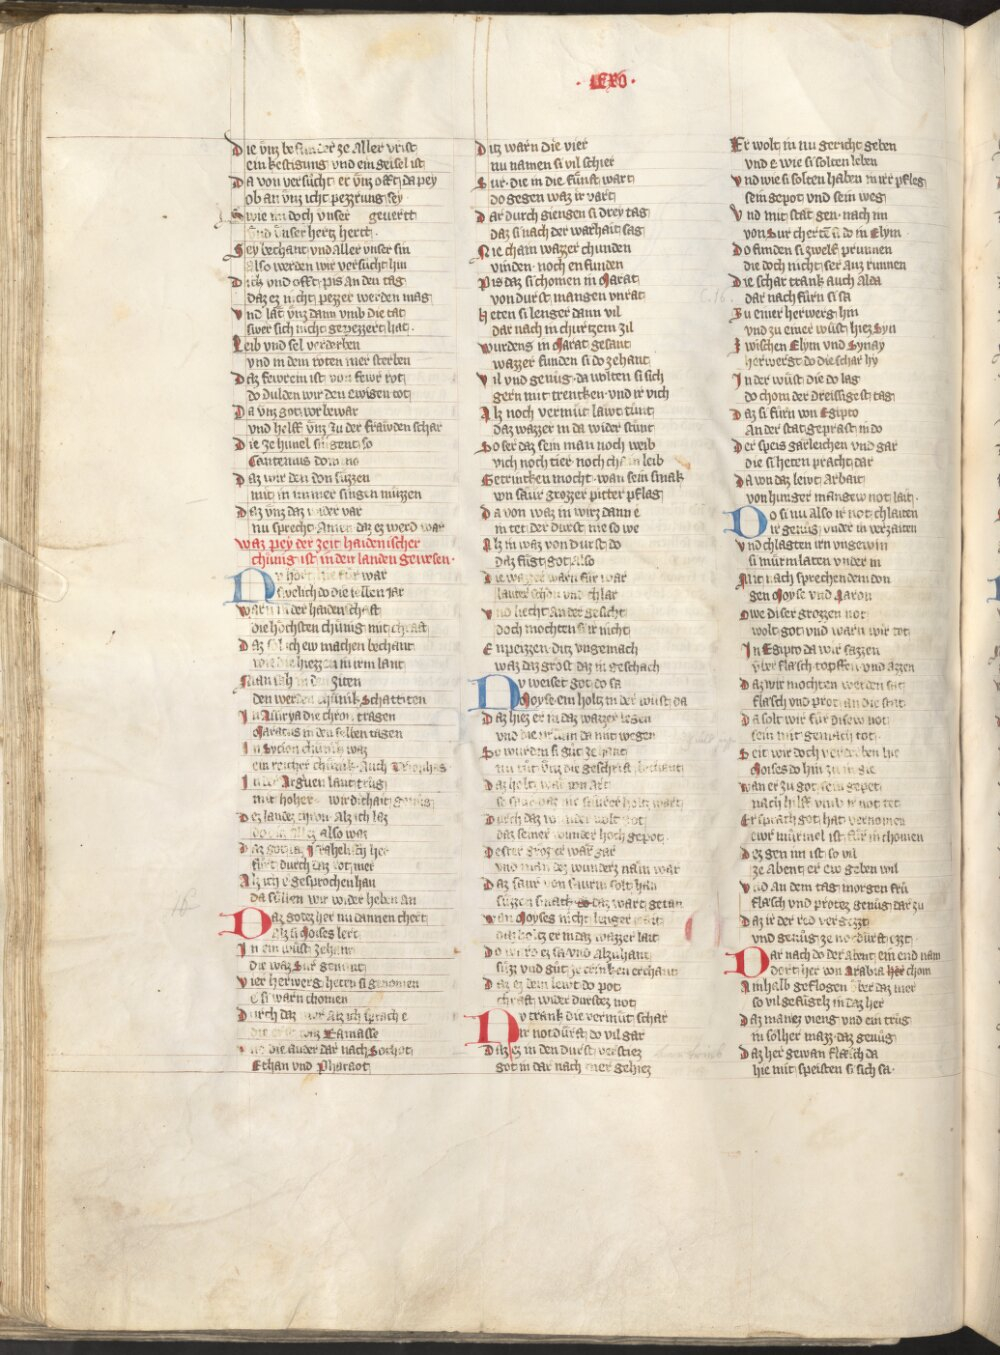 Die vnz besunder ze aller vrist
ein kestigung vnd ein geisel ist
Da von versücht er vnz offt da pey
ob an vnz icht pezzrung sey
Swie im doch vnser gevertt
vnd vnser hertz hertt
Sey bechant vnd aller vnser sin
also werden wir versücht hin
Dick vnd offt pis an den tag
daz ez nicht pezzer werden mag
Vnd lat vnz dann vmb die tat
swer sich nicht gepezzert hat
Leib vnd sel verderben
vnd in dem roten mer sterben
Daz fewrein ist von fewr rot
do dulden wir den ewigen tot
Da vnz got vor bewar
vnd helff vnz zu der fräwden schar
Die ze himel singent so
Cantemus domino
Daz wir den don süzzen
mit in immer singen müzzen
Daz vnz daz wider var
nu sprecht Amen daz ez werd war
waz pey der zeit haidenischer
chünig ist in den landen gewesen
Nu hört für war
welich do die selben jar
Warn in der haidenschaft
die höchsten chünig mit chraft
Daz sol ich ew machen bechant
wie die hiezzen in irm lant
Man sach in den ziten
den werden chünik Schattiten
In Assirya die chron tragen
Maratus in den selben tagen
In Sycion chünig waz
ein reicher chünik auch Triophas
In der Arguen lant trüg
mit hoher wirdichait genüg
Dez landez chron alz ich laz
also waz
Daz gotez Israhelisch her
fürt durch daz rot mer
Alz ich e gesprochen han
da süllen wir wider heben an
Daz gotez her nu dannen chert
alz si Moises lert
In ein wüst zehant
die waz Sur genant
Vier herwerg heten si genomen
e si warn chomen
Durch daz mer alz ich sprach e
die erst waz Ramasse
die ander dar nach Sochot
Ethan vnd Pharaot
Ditz warn die vier
nu namen si vil schier
Sur die in die fünft wart
do gegen waz ir vart
Dar durch giengen si drey tag
daz si nach der warhait sag
Nie chain wazzer chunden
vinden noch enfunden
Pis daz si chomen in Marat
von durst mangen vnrat
Heten si lenger dann vil
dar nach in churtzem zil
Wurdens in Marat gesant
wazzer funden si do zehant
Vil vnd genüg da wolten si sich
gern mit trencken vnd ir vich
Alz noch vermüt läwt tünt
daz wazzer in da wider stünt
So ser daz sein man noch weib
vich noch tier noch chain leib
Getrincken mocht wan sein smak
von saur grozzer pitter pflag
Da von waz in wirz dann e
in tet der durst nie so we
Alz in waz von durst do
daz fügt got also
Die wazzer warn für war
lauter schon vnd chlar
Vnd liecht an der gesicht
doch mochten si ir nicht
Enpeizzen ditz vngemach
waz daz gröst daz in geschach
Du weiset got do sa
Moyse ein holtz in der wüst da
Daz hiez er in daz wazzer legen
vnd die da mit wegen
So wurden si güt zehant
nu tüt vnz die geschrift bechant
Daz holtz waz von art
so saur daz nie saurer holtz wart
Durch daz wunder wolt got
daz seiner wunder hoch gepot
Dester grozzer war gar
vnd man dez wunderz näm war
Daz saur von saurm solt han
süzzen smack daz wart getan
Wan Moyses nicht lenger
daz holtz er in daz wazzer lait
Do wurd ez sa vnd alzuhant
süzz vnd güt ze trinken erchant
Daz ez dem lewt do pot
chraft wider durstez not
Du trank die vermüt schar
ir notdürft do vil gar
Daz ez in den durst verstiez
got in dar nach mer gehiez
Er wolt in nu gericht geben
vnd e wie si solten leben
Vnd wie si solten haben in irr pfleg
sein gepot vnd sein weg
Vnd mit stät gen nach im
von Sur chertens do in Elym
Do funden si zwelf prunnen
die doch nicht ser auz runnen
Die schar trank auch alda
dar nach fürn si sa
Zu einer herwerg hin
vnd zu einer wüst hiez Syn
Zwischen Elym vnd Synay
herwergt do die schar hy
In der wüst die do lag
do chom der dreissigest tag
Daz si fürn von Egipto
an der stat geprast in do
Der speis gärleichen vnd gar
die si heten pracht dar
Da von daz lewt arbait
von hunger mangew not lait
Do si nu also ir not chlaiten
ir genüg vnder in verzaiten
Vnd chlagten irn vngewin
si mürmlaten vnder in
Mit nach sprechen dem don
gen Moyse vnd Aaron
Owe diser grozzen not
wolt got vnd warn wir tot
In Egipto da wir sazzen
vber flaisch töpffen vnd azzen
Daz wir mochten werden sat
flaisch vnd prot an die stat
Da solt wir für disew not
sein mit gemach tot
Seit wir doch verderben hie
Moises do hin zu in gie
Wan er zu got sein gepet
nach hilff vmb ir not tet
Er sprach got hat vernomen
ewr mürmel ist für in chomen
Dez gen im ist so vil
ze abent er ew geben wil
Vnd an dem tag morgen frü
flaisch vnd protez genüg dar zu
Daz ir der red vergezzt
vnd genüg ze notdürft ezzt
Dar nach do der abent ein end nam
dort her von Arabia her chom
Ainhalb geflogen vber daz mer
so vil gefügelz in daz her
Daz manez vieng vnd ein trüg
in solher mazz daz genüg
Daz her gewan flaisch da
hie mit speisten si sich sa